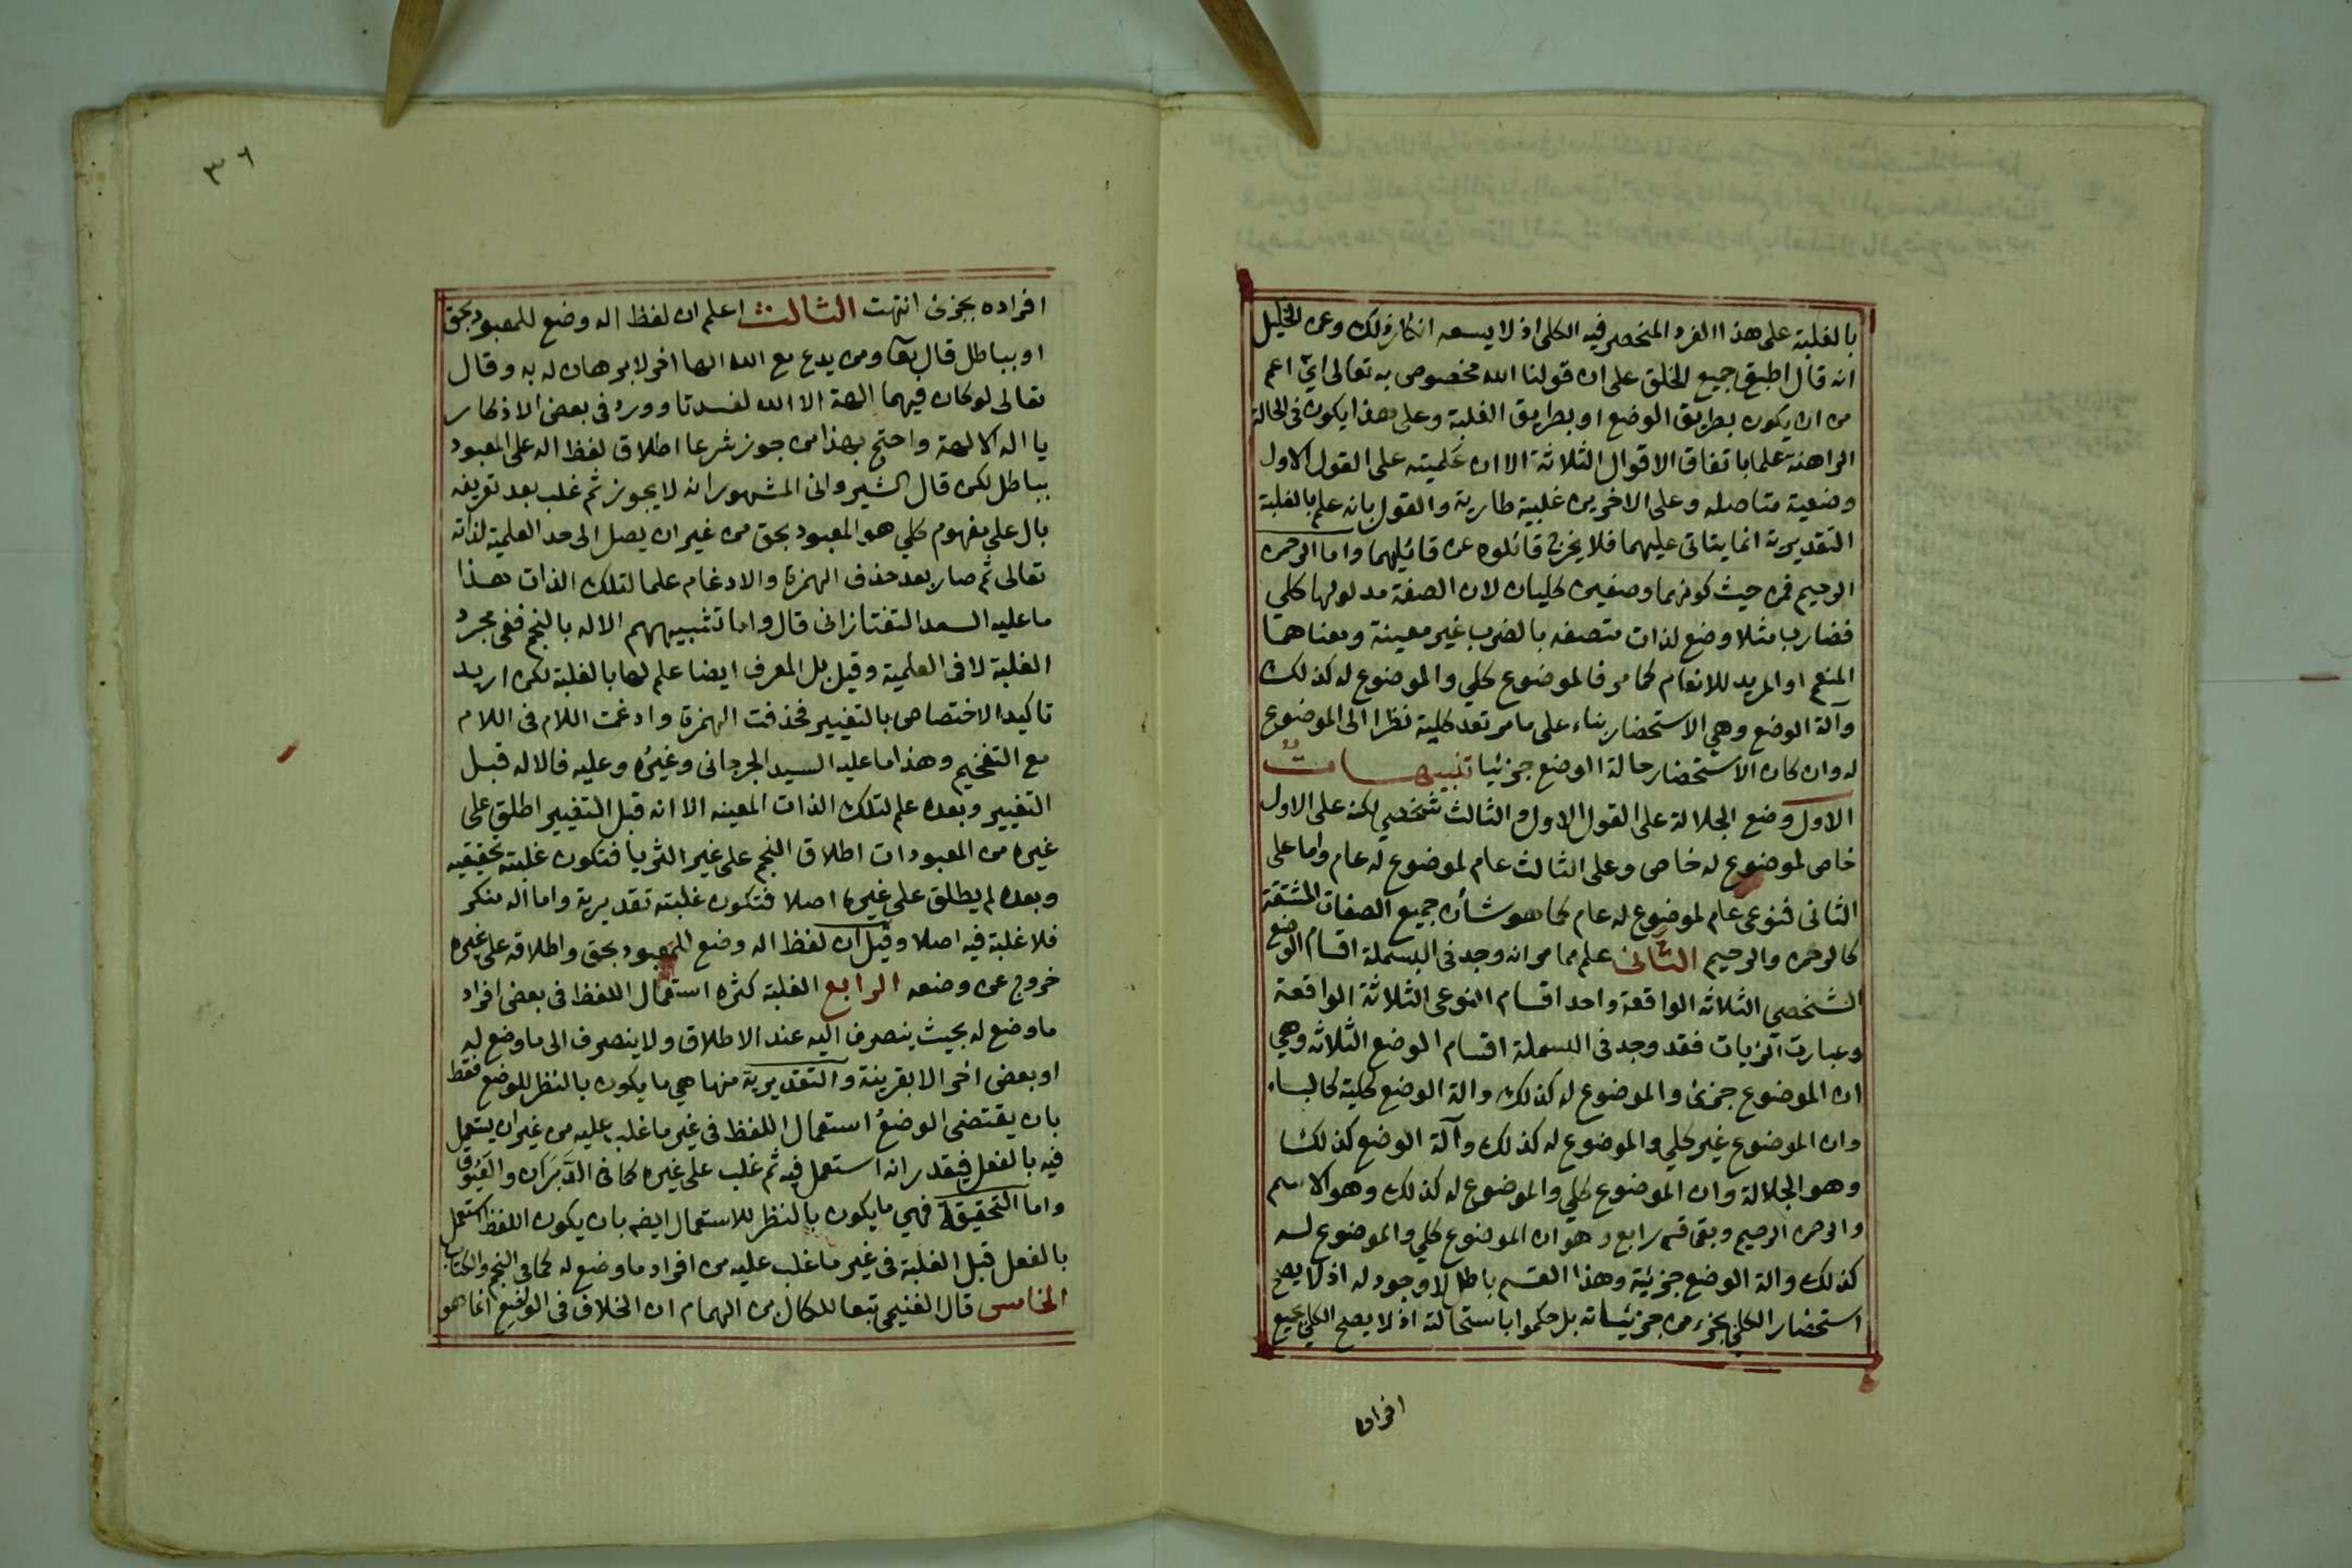 بالغلبة على هذا الفرد المنحصر فيه الكلى اذ لا يسعه انكار ذلك وعن الخليل
انه قال اطبق جميع الخلق على ان قولنا الله مخصوص به تعالى اي اعم
من ان يكون بطريق الوضع او بطريق الغلبة وعلى هذا يكون فى الحالة
الراهنة علما باتفاق الاقوال الثلاثة الا ان عَلميته على القول الاول
وضعية متاصله وعلى الاخرين غلبية طارية والقول بانه علم بالغلبة
التقديرية انما يتاتى عليهما فلا يخرج قائلوه عن قائليهما واما الرحمن
الرحيم فمن حيث كونهما وصفين كليان لان الصفة مدلولها كلي
فضارب مثلا وضع لذات متصفه بالضرب غير معينة ومعناهما
المنعم او المريد للانعام كما مر فالموضوع كلي والموضوع له كذلك
وآلة الوضع وهي الاستحضار بناء على ما مر تعد كلية نظرا الى الموضوع
له وان كان الاستحضار حالة الوضع جزئيا تنبيهات
الاول وضع الجلالة على القول الاول والثالث شخصي لكنه على الاول
خاص لموضوع له خاص وعلى الثالث عام لموضوع له عام واما على
الثانى فنوعى عام لموضوع له عام كما هو شأن جميع الصفات المشتقة
كالرحمن والرحيم الثانى علم مما مر انه وجد فى البسملة اقسام الوضع
الشخصي الثلاثه الواقعة واحد اقسام النوعى الثلاثة الواقعة
وعبارت الزيات فقد وجد فى البسملة اقسام الوضع الثلاثه وهي
ان الموضوع جزئى والموضوع له كذلك والة الوضع كلية كالباء
وان الموضوع غير كلي والموضوع له كذلك وآلة الوضع كذلك
وهو الجلالة وان الموضوع كلي والموضوع له كذلك وهو الاسم
والرحمن الرحيم وبقى قسم رابع وهو ان الموضوع كلي والموضوع له
كذلك والة الوضع جزئية وهذا القسم باطل لا وجود له اذ لا يصح
استحضار الكلي بجزء من جزئياته بل حكموا باستحالته اذ لا يصح الكلي جميع
افراده
٣٦
افراده بجزئ انتهت الثالث اعلم ان لفظ اله وضع للمعبود بحق
او بباطل قال تعا ومن يدع مع الله الها اخر لا برهان له به وقال
تعالى لو كان فيهما الهة الا الله لفسدتا وورد فى بعض الاذكار
يا اله الالهة واحتج بهذا من جوز شرعا اطلاق لفظ اله على المعبود
بباطل لكن قال الشيروانى المشهور انه لا يجوز ثم غلب بعد تعريفه
بال على مفهوم كلي هو المعبود بحق من غير ان يصل الى حد العلمية لذاته
تعالى ثم صار بعد حذف الهمزة والادغام علما لتلك الذات هذا
ما عليه السعد التفتازانى قال واما تشبيههم الاله بالنجم ففى مجرد
الغلبة لا فى العلمية وقيل بل المعرف ايضا علم لها بالغلبة لكن اريد
تاكيد الاختصاص بالتغيير فحذفت الهمزة وادغمت اللام فى اللام
مع التفخيم وهذا ما عليه السيد الجرجانى وغيره وعليه فالاله قبل
التغيير وبعده علم لتلك الذات المعينه الا انه قبل التغيير اطلق على
غيره من المعبودات اطلاق النجم على غير الثريا فتكون غلبته تحقيقيه
وبعده لم يطلق على غيره اصلا فتكون غلبته تقديرية واما اله منكر
فلا غلبة فيه اصلا وقيل ان لفظ اله وضع للمعبود بحق واطلاقه على غيره
خروج عن وضعه الرابع الغلبة كثره استعمال اللفظ فى بعض افراد
ما وضع له بحيث ينصرف اليه عند الاطلاق ولا ينصرف الى ما وضع له
او بعض اخر الا بقرينة والتقديرية منها هي ما يكون بالنظر للوضع فقط
بان يقتضى الوضعُ استعمال اللفظ فى غير ما غلب عليه من غير ان يستعمل
فيه بالفعل فيقدر انه استعمل فيه ثم غلب على غيره كما فى الدَّبَرَان والعَيُّوق
واما التحقيقة فهي ما يكون بالنظر للاستعمال ايضه بان يكون اللفظ استعمل
بالفعل قبل الغلبة فى غير ما غلب عليه من افراد ما وضع له كما فى النجم والكتاب
الخامس قال الغنيمى تبعا للكمال بن الهمام ان الخلاف فى الواضع انما هو